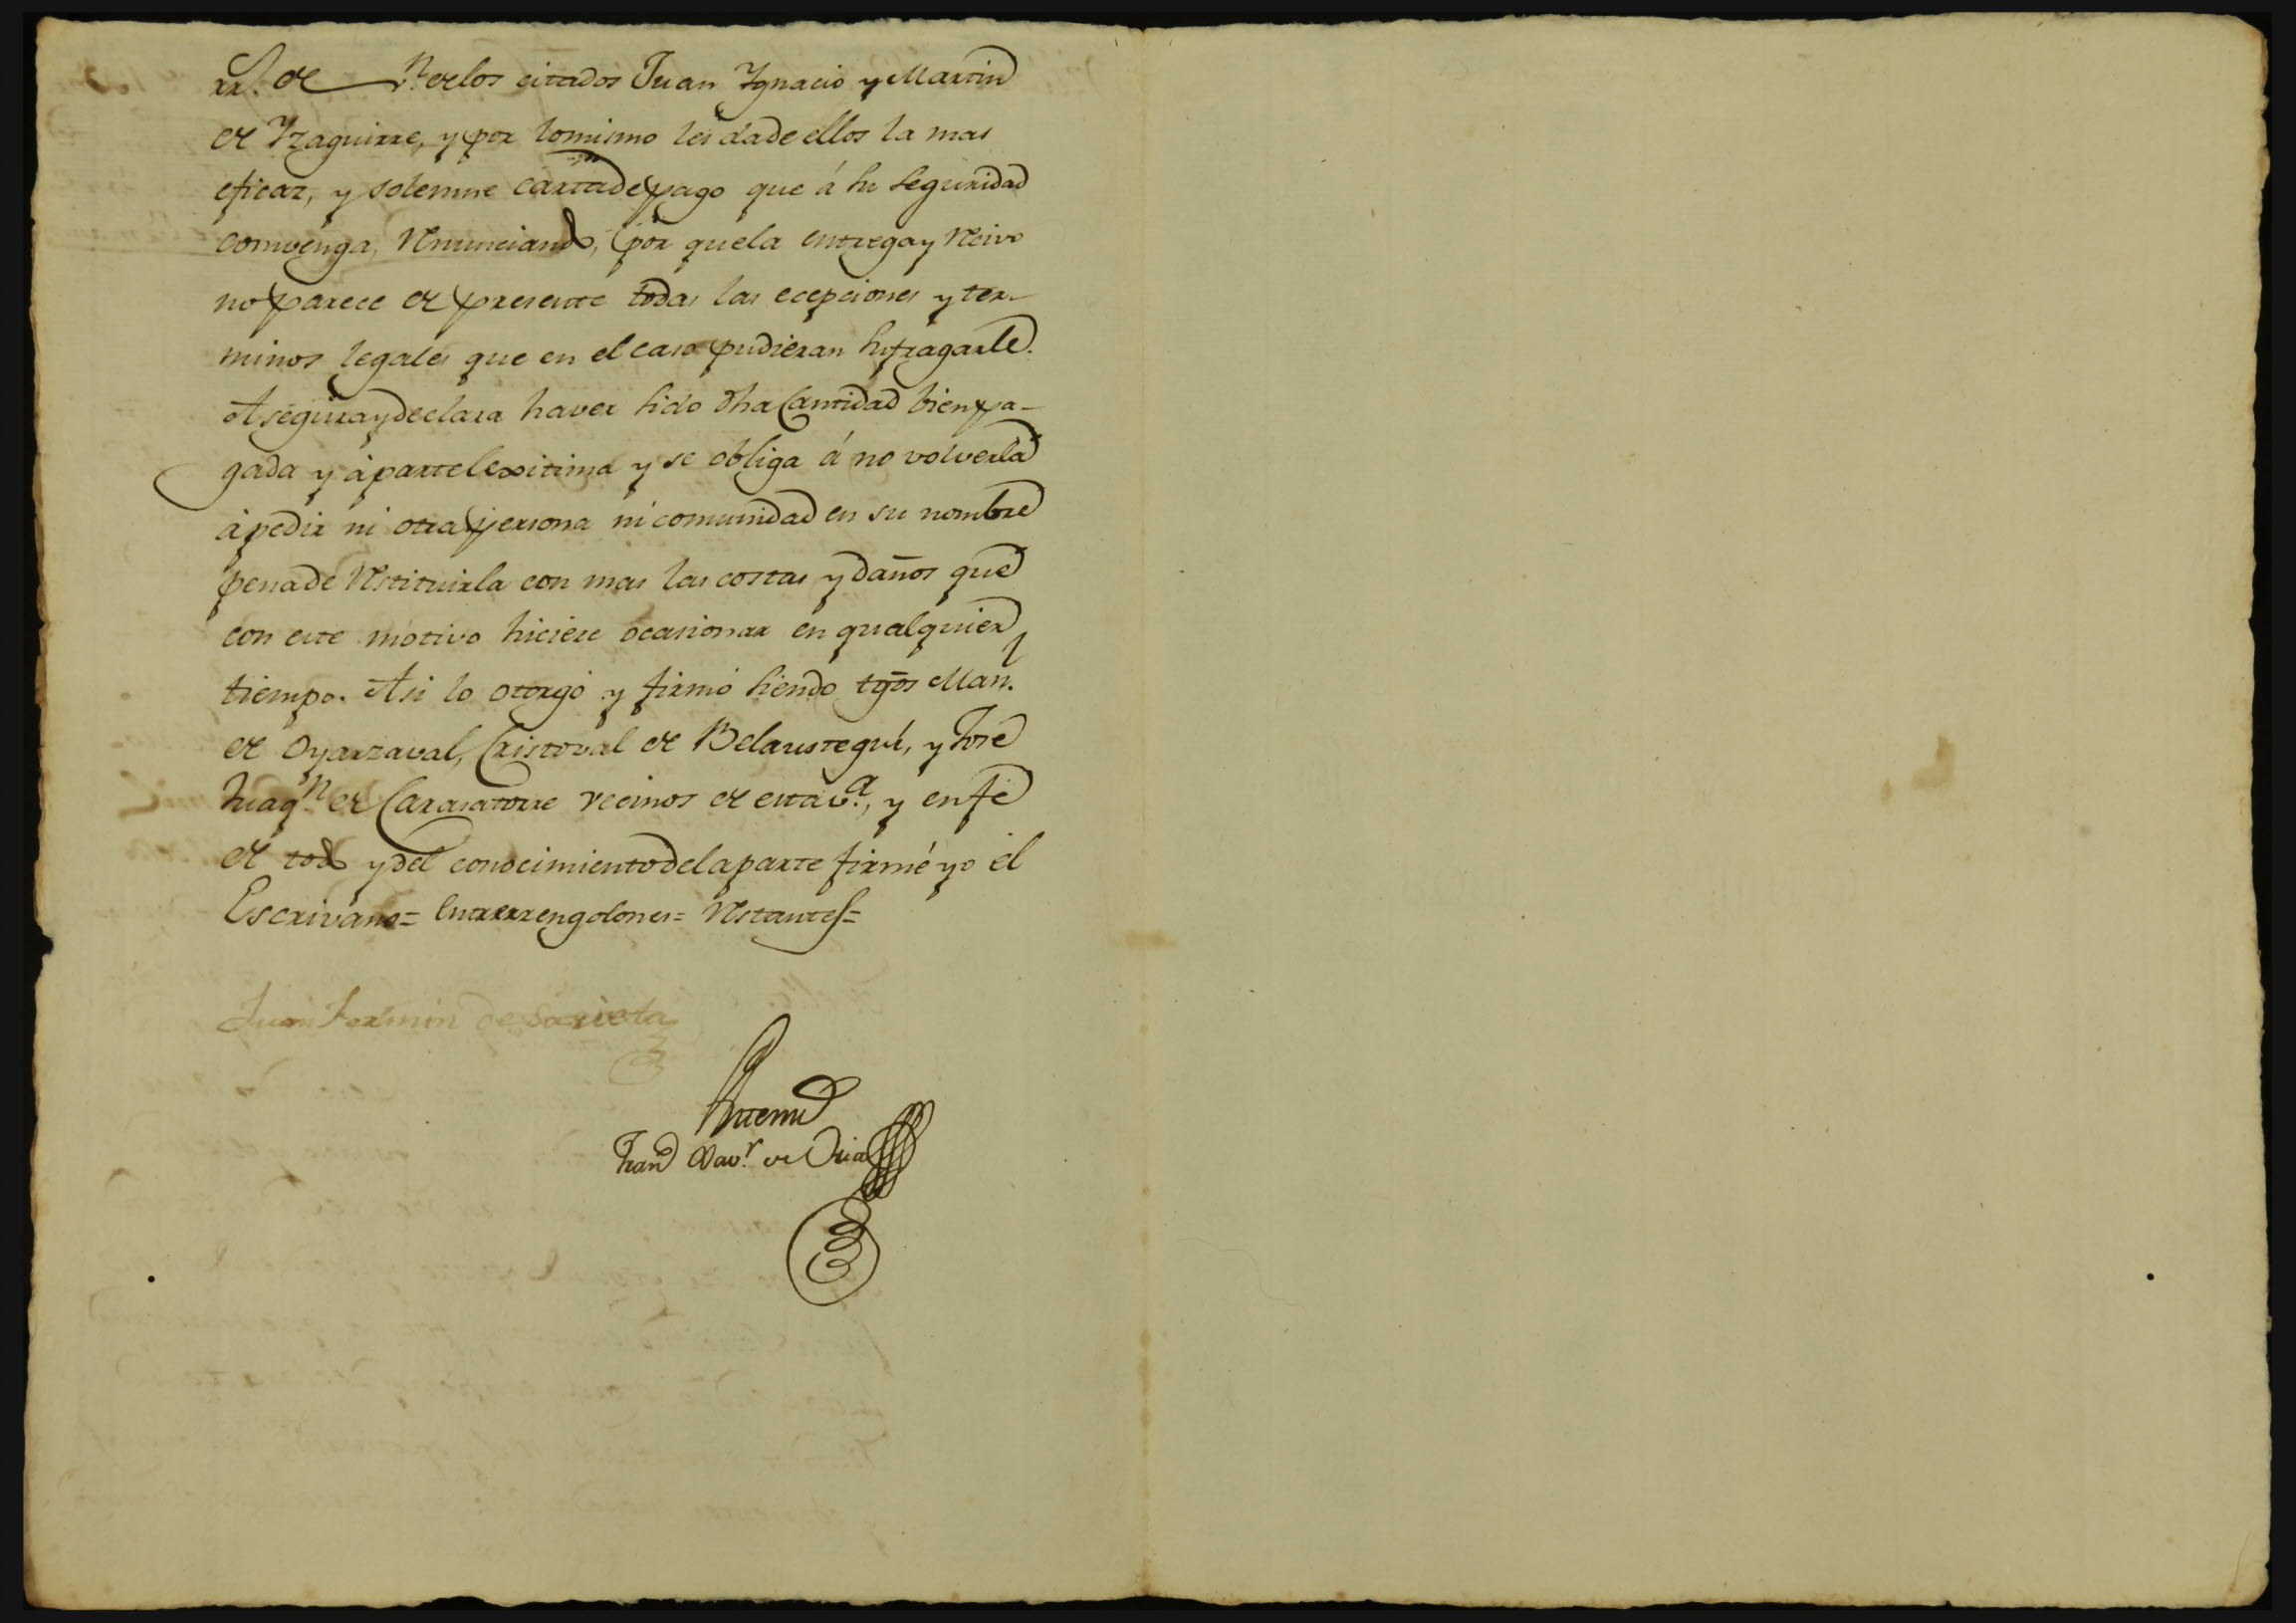 rr.ˢ de v.ⁿ de los citados Juan Ygnacio y Martin
de Yzaguirre, y por lo mismo les da de ellos la mas
eficaz, y solemne carta de pago que á su seguridad
comvenga, renunciando, por que la entrega y recivo
no parece de presente todas las ecepciones y ter-
minos legales que en el caso pudieran sufragarle.
Asegura y declara haver sido dha Cantidad bien pa-
gada y à parte lexitima y se obliga á no volverla
à pedir ni otra persona ni comunidad en su nombre
pena de restituirla con mas las costas y daños que
con este motivo hiciere ocasionar en qualquier
tiempo. Asi lo otorgó y firmó siendo tgōs Man.ˡ
de Oyarzaval, Cristoval de Belaustegui, y José
Juaqⁿ de Cararatorre vecinos de esta v.ᵃ, y en fe
de todo y del conocimiento de la parte firmé yo el
Escrivano= Entrerrengolones= restantes=
Juan Fermin de Sarieta
Antemi
Fran.ᶜᵒ Xav.ʳ de Oria